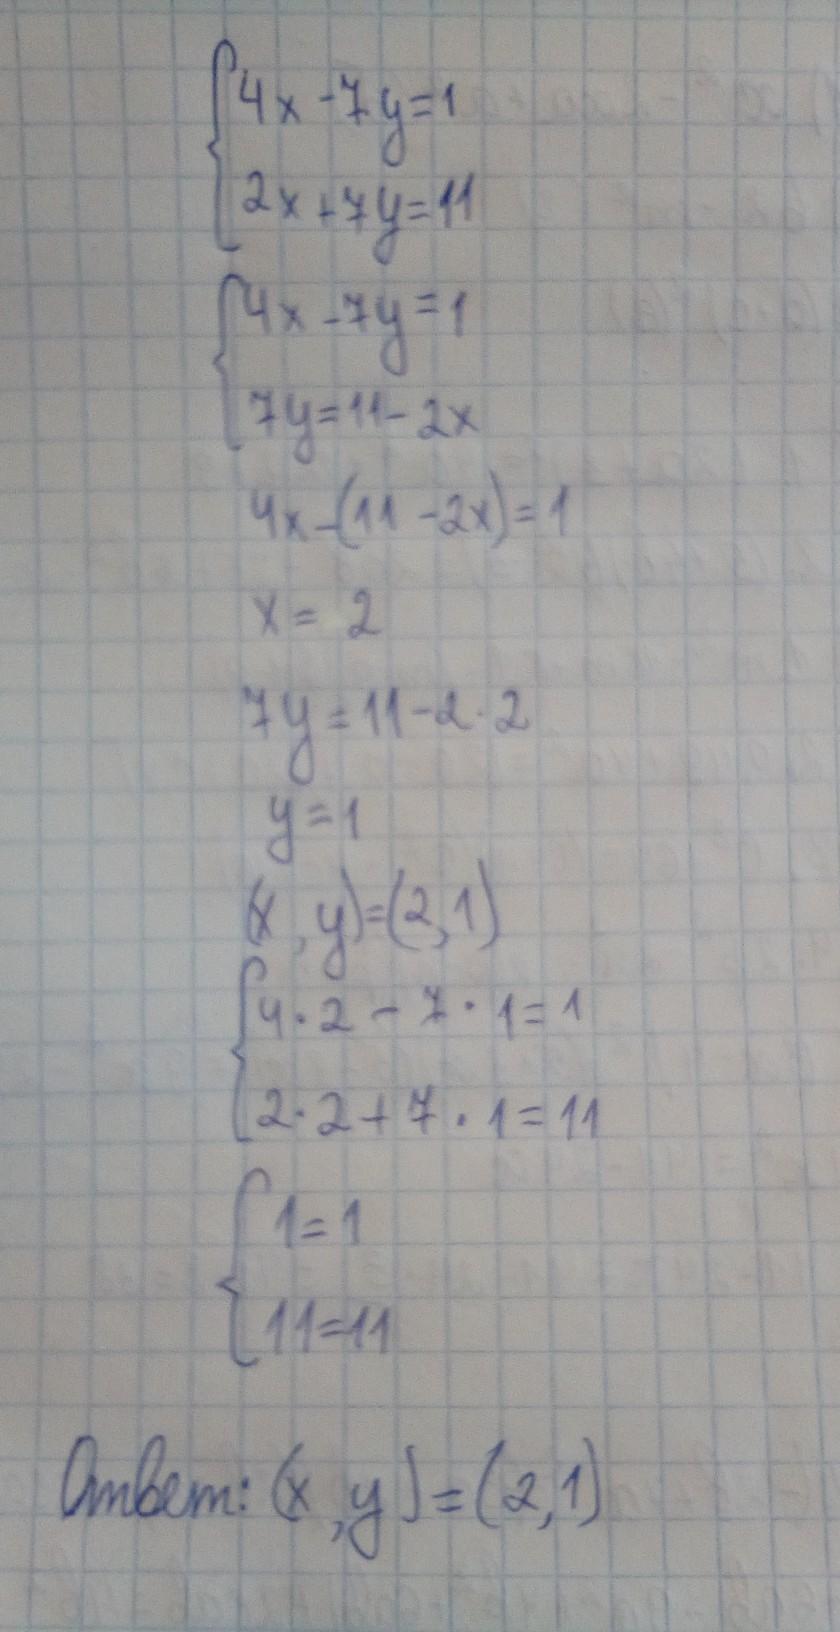 4x-7y=1
2x+7y=11
4x-7y=1
7y=11-2x
4x-(11-2x)=1
x= 2
7y=11-2·2
y=1
(x,y)=(2,1)
4·2-7·1=1
2·2+7·1=11
1=1
11=11
Ответ: (x,y)=(2,1)